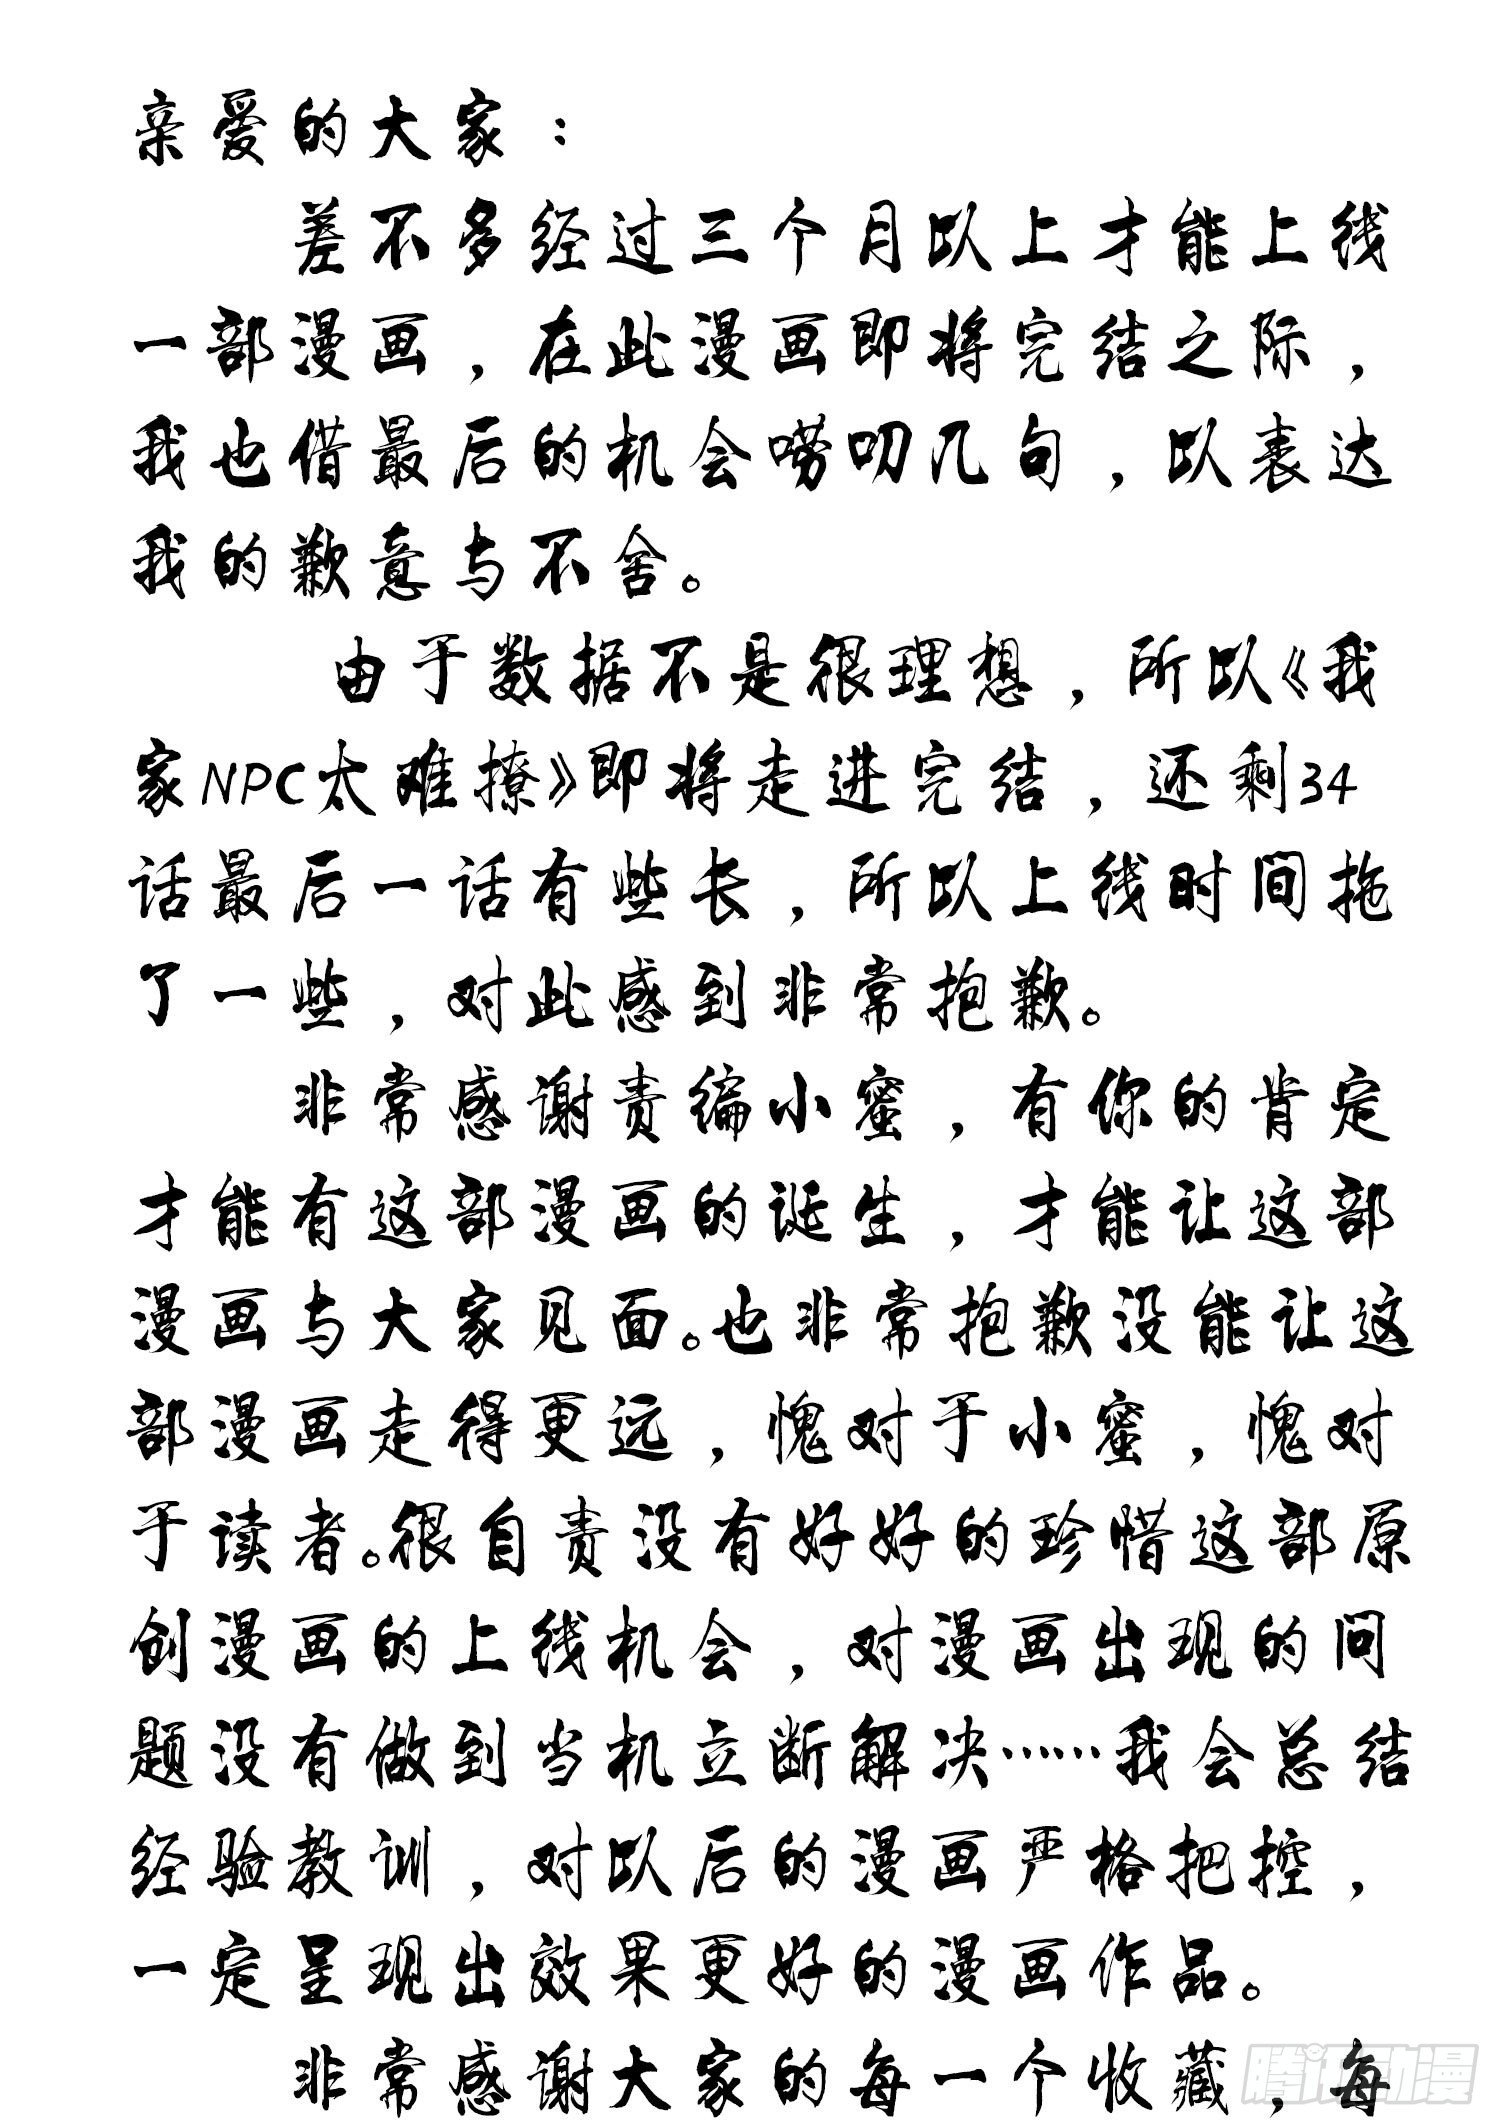 亲爱的大家：
差不多经过三个月以上才能上线
一部漫画，在此漫画即将完结之际，
我也借最后的机会唠叨几句，以表达
我的歉意与不舍。
由于数据不是很理想，所以《我
家NPC太难撩》即将走进完结，还剩34
话最后一话有些长，所以上线时间拖
了一些，对此感到非常抱歉。
非常感谢责编小蜜，有你的肯定
才能有这部漫画的诞生，才能让这部
漫画与大家见面。也非常抱歉没能让这
部漫画走得更远，愧对于小蜜，愧对
于读者。很自责没有好好的珍惜这部原
创漫画的上线机会，对漫画出现的问
题没有做到当机立断解决……我会总结
经验教训，对以后的漫画严格把控，
一定呈现出效果更好的漫画作品。
非常感谢大家的每一个收藏，每
腾讯动漫